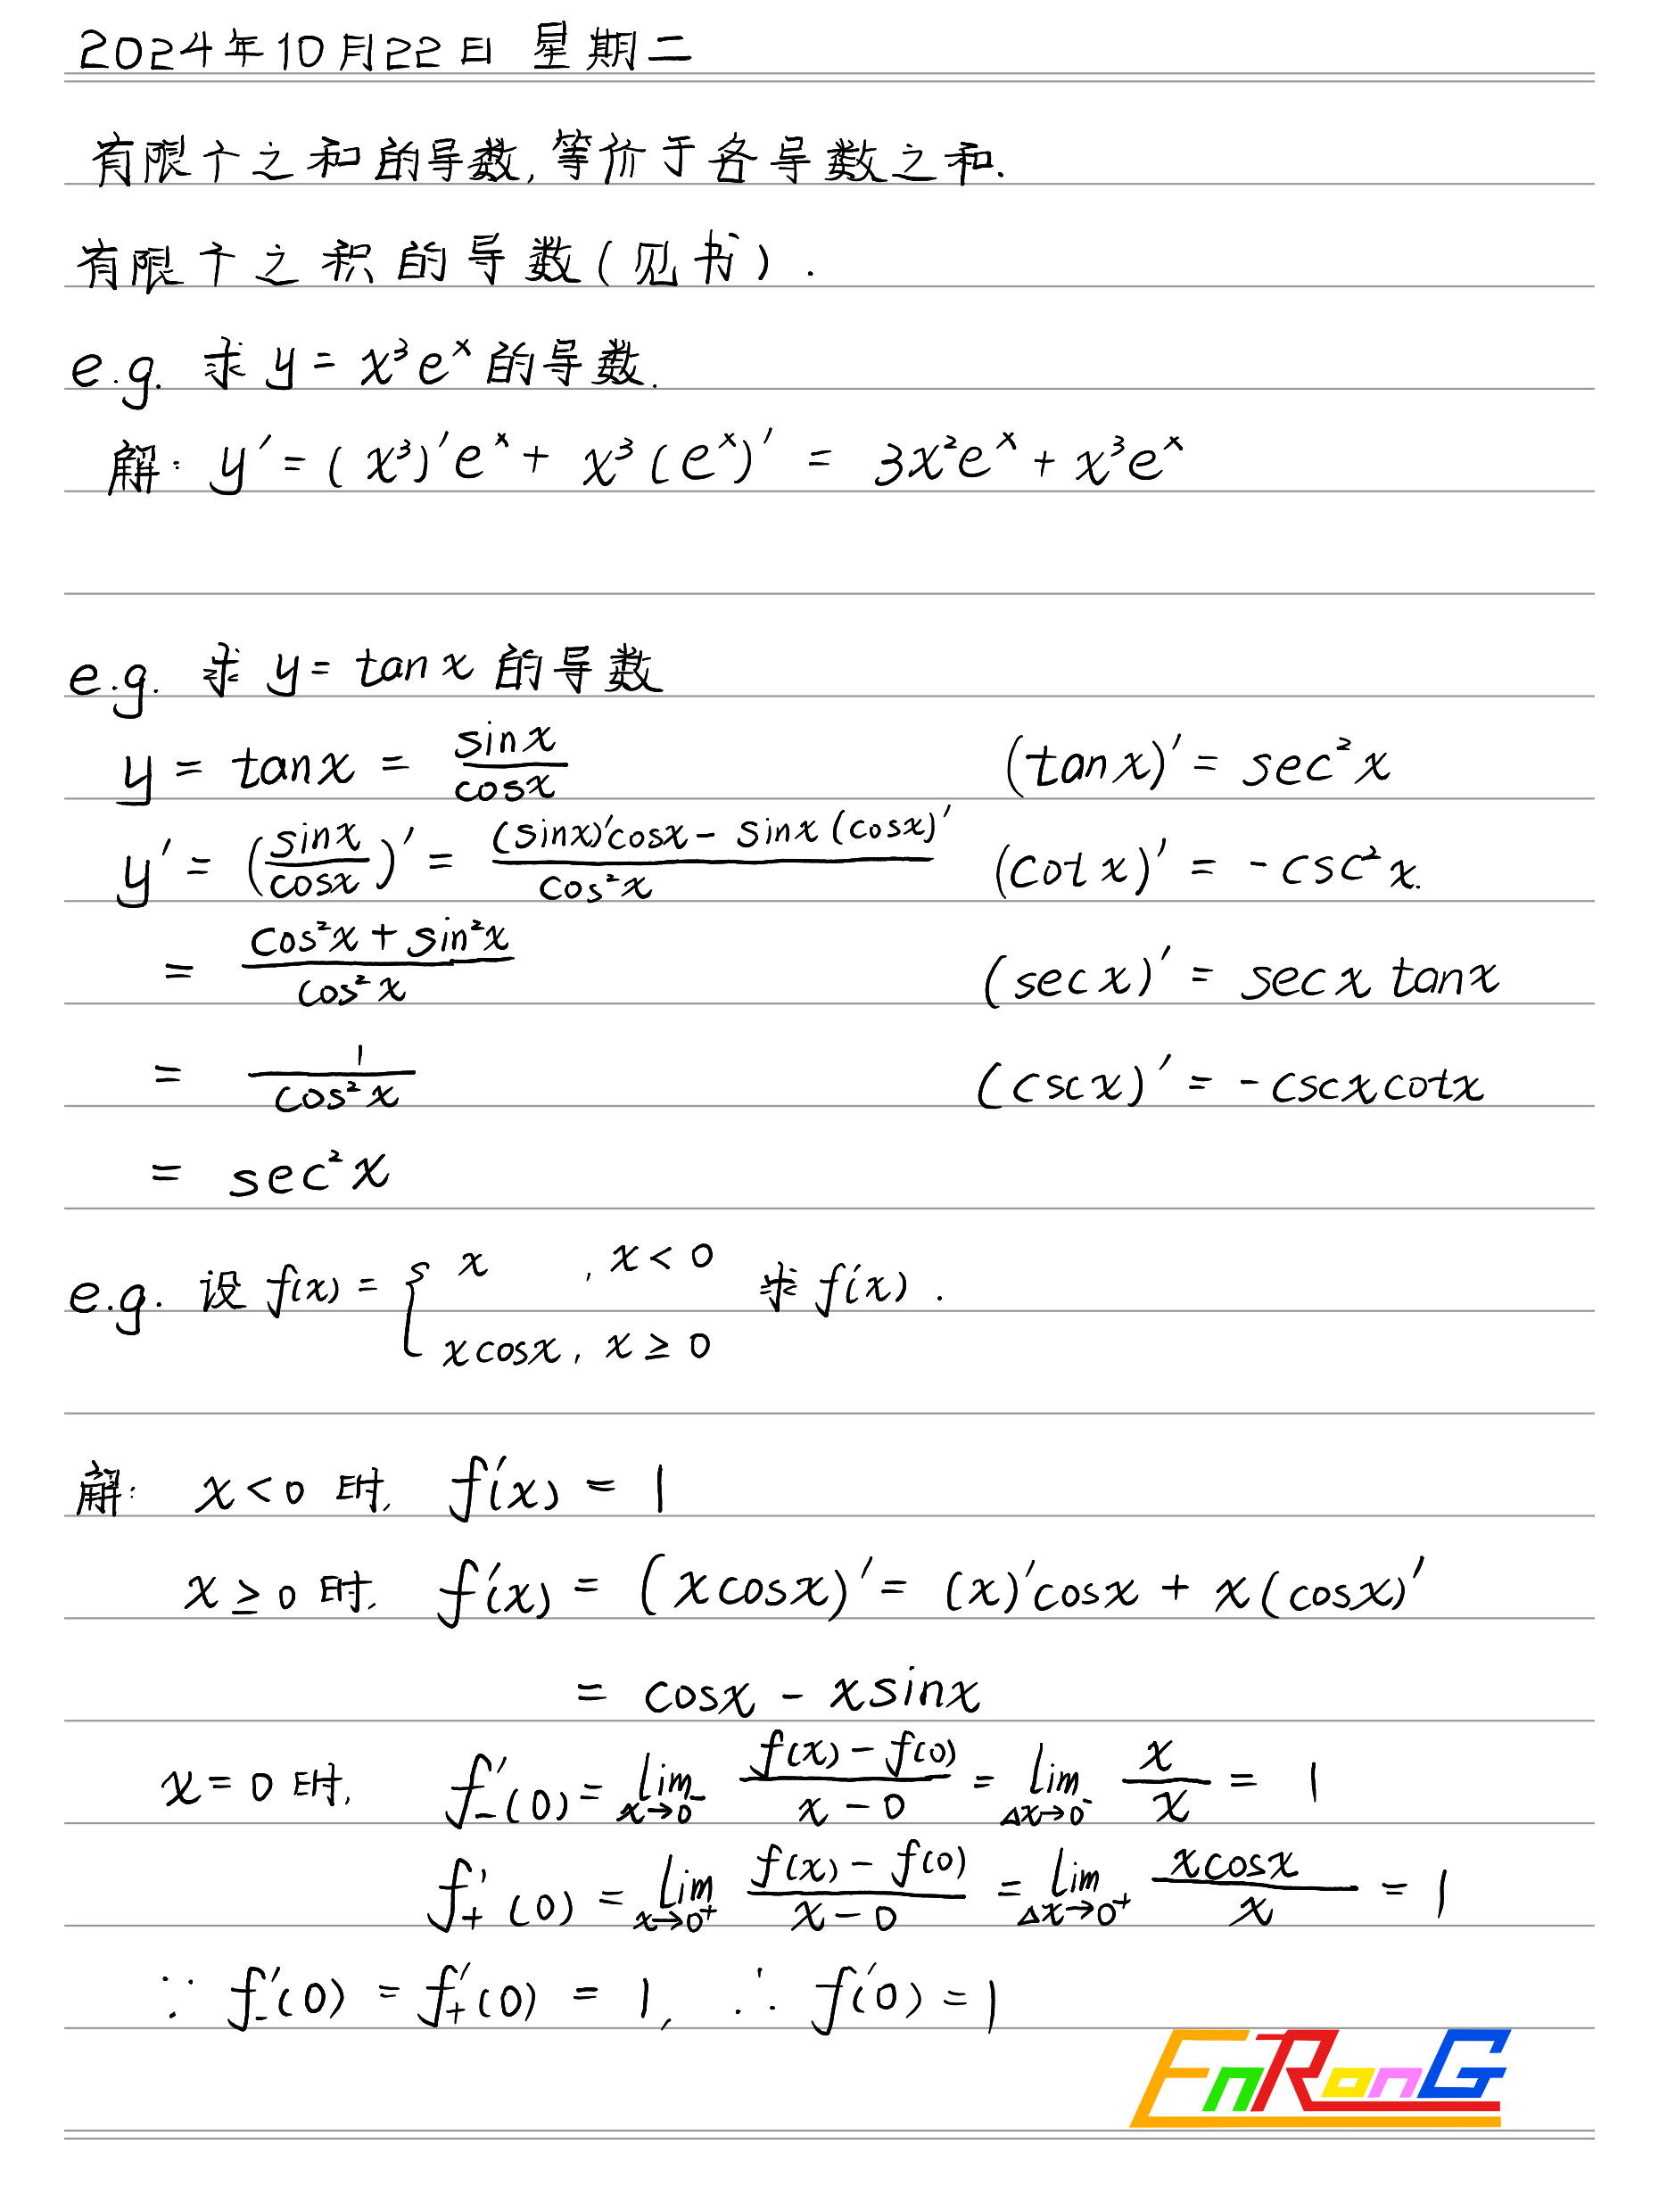 2024年10月22日 星期二
有限个之和的导数,等价于各导数之和.
有限个之积的导数(见书).
e.g. 求 y = x³eˣ 的导数.
解: y′ = (x³)′eˣ + x³(eˣ)′ = 3x²eˣ + x³eˣ
e.g. 求 y = tan x 的导数
y = tanx = sinx/cosx (tanx)′ = sec²x
y′ = (sinx/cosx)′ = ((sinx)′cosx - sinx(cosx)′)/cos²x (cotx)′ = -csc²x.
= (cos²x + sin²x)/cos²x (secx)′ = secx tanx
= 1/cos²x (cscx)′ = -cscxcotx
= sec²x
e.g. 设 f(x) = { x , x < 0 求 f′(x).
xcosx, x ≥ 0
解: x<0 时, f′(x) = 1
x ≥ 0 时, f′(x) = (xcosx)′ = (x)′cosx + x(cosx)′
= cosx - xsinx
x = 0 时, f′₋(0) = lim x→0⁻ (f(x) - f(0))/(x - 0) = lim Δx→0⁻ x/x = 1
f′₊(0) = lim x→0⁺ (f(x) - f(0))/(x - 0) = lim Δx→0⁺ xcosx/x = 1
∵ f′₋(0) = f′₊(0) = 1, ∴ f′(0) = 1
EnRonG